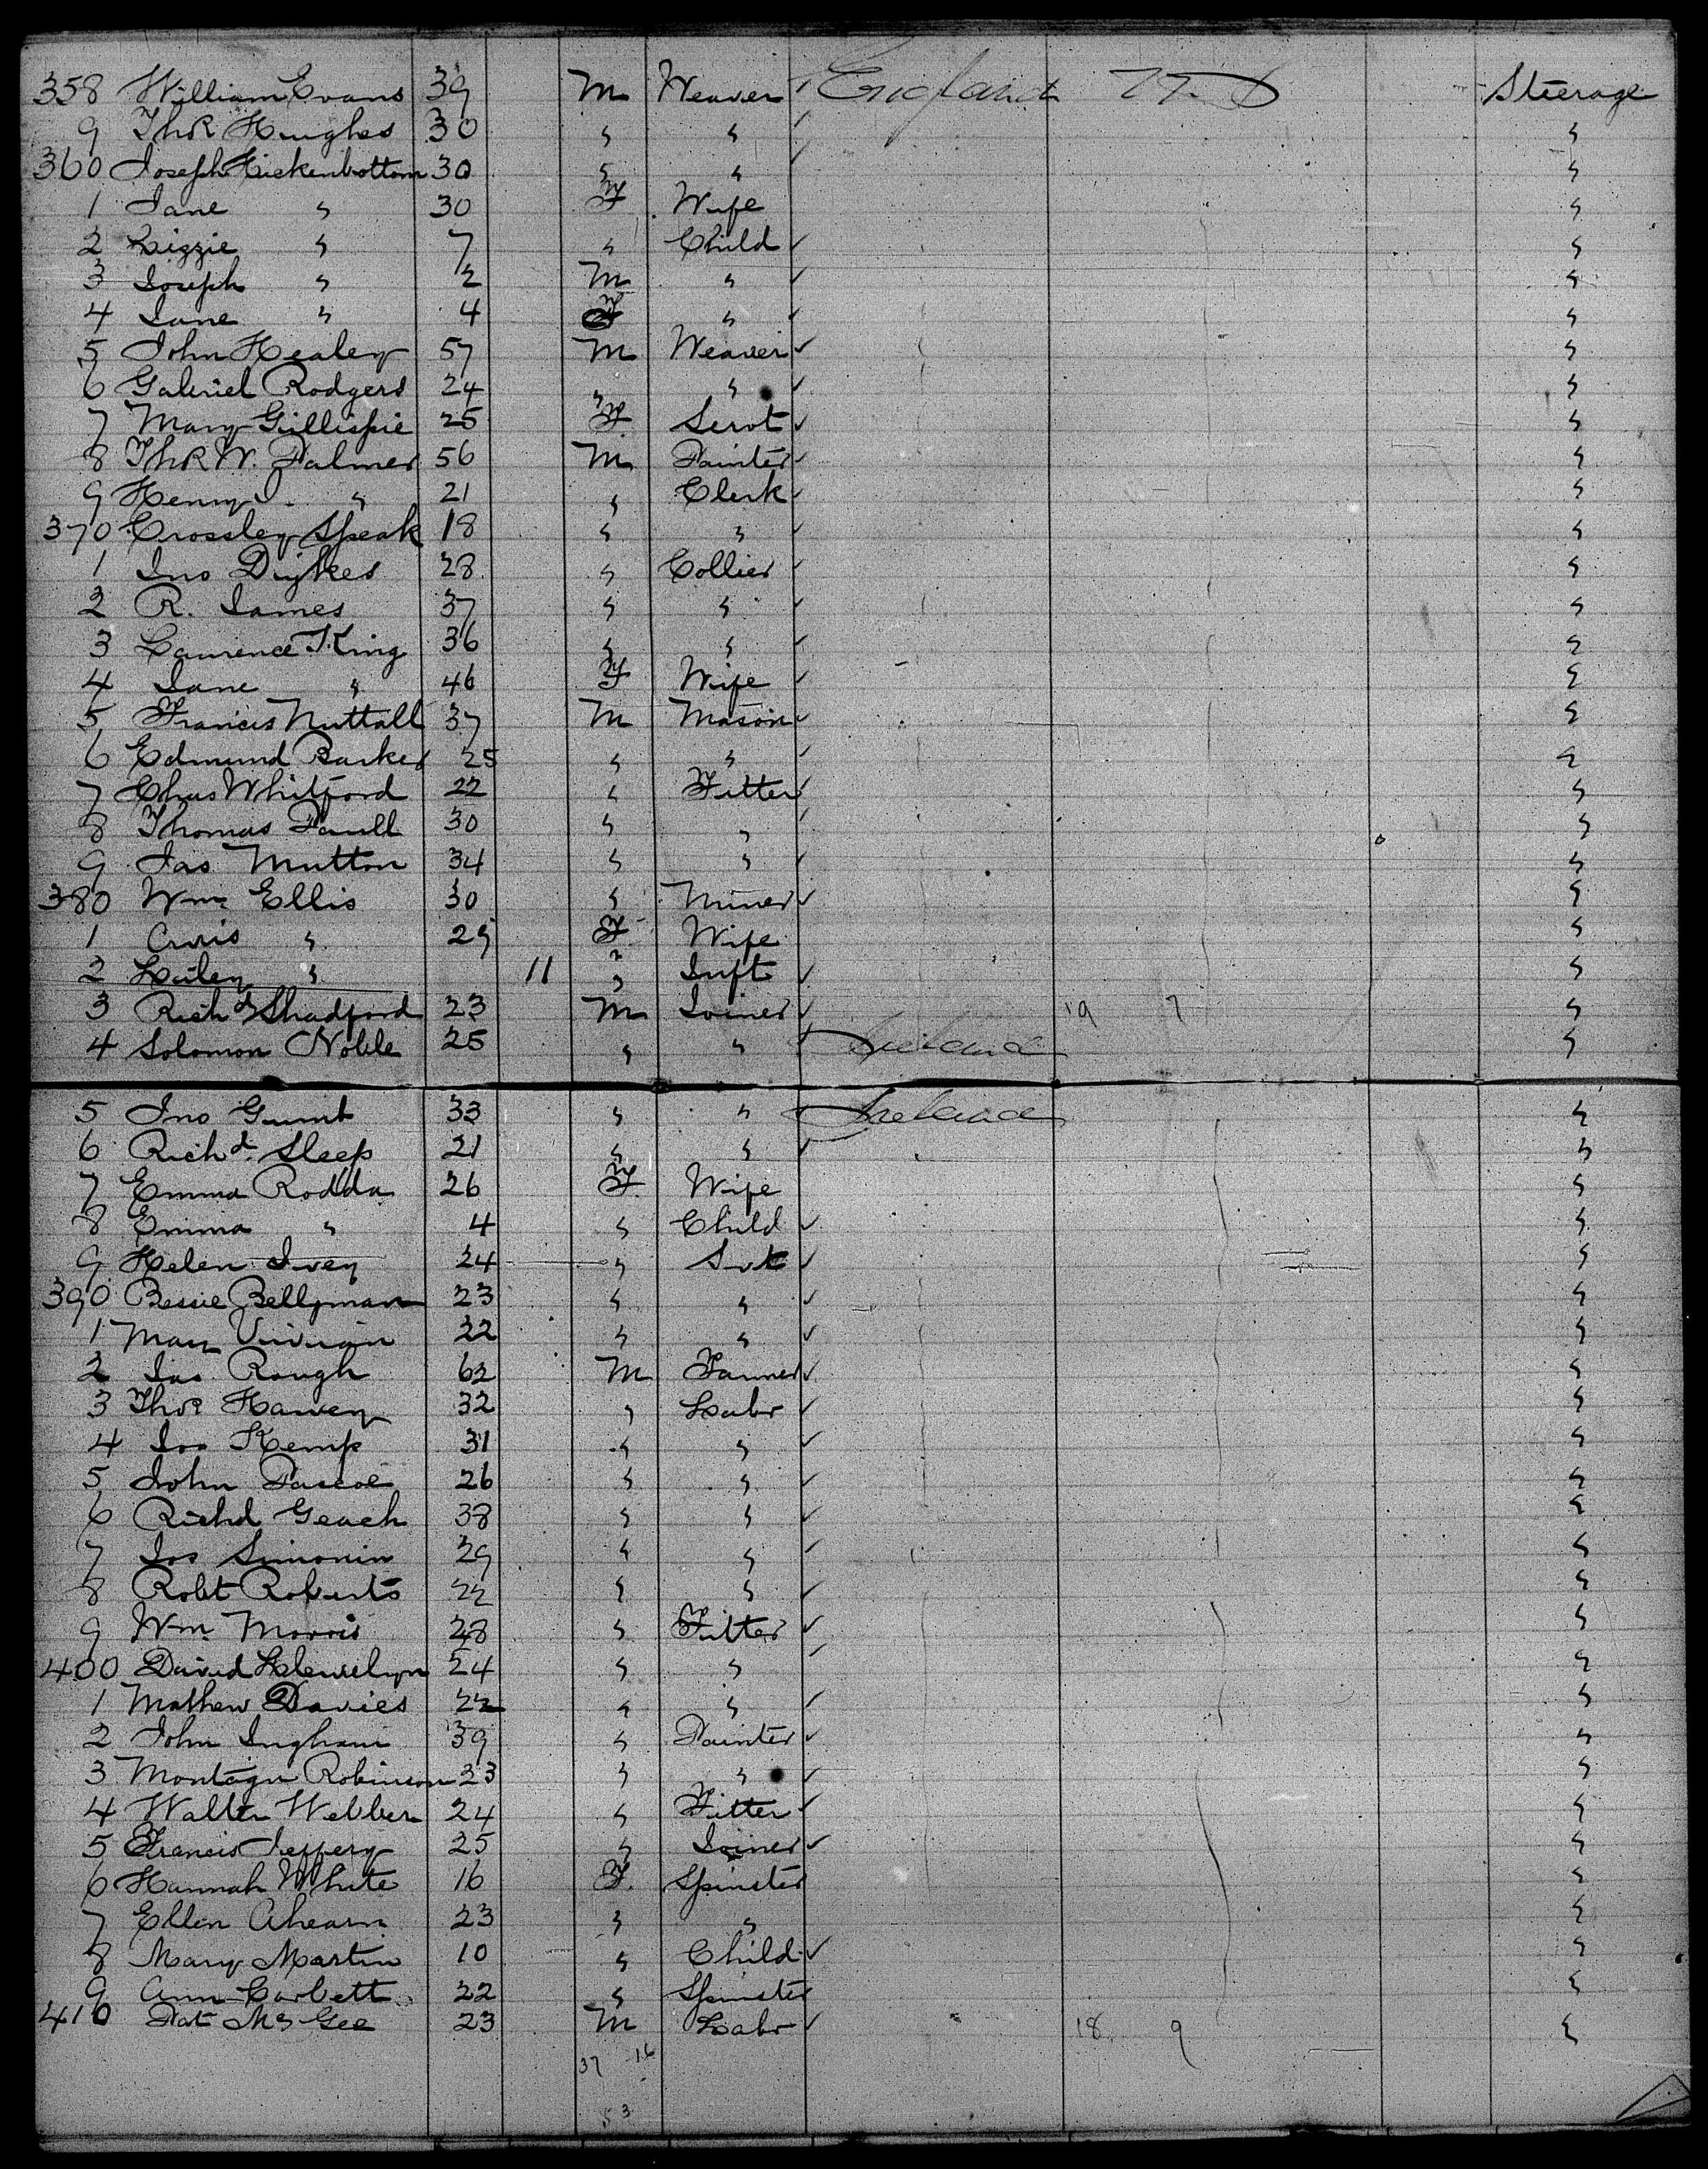 358 William Evans 39 M Weaver England U.S. Steerage
9 Thos Hughes 30 " " "
360 Joseph Hickenbottom 30 " " "
1 Jane " 30 F Wife "
2 Lizzie " 7 " Child "
3 Joseph " 2 M " "
4 Jane " 4 F " "
5 John Healey 57 M Weaver "
6 Gabriel Rodgers 24 " " "
7 Mary Gillispie 25 F Servt "
8 Thos W. Palmer 56 M Painter "
9 Henry " 21 " Clerk "
370 Crossley Speak 18 " " "
1 Jno Dykes 28 " Collier "
2 R. James 37 " " "
3 Laurence King 36 " " "
4 Jane " 46 F Wife "
5 Francis Nuttall 37 M Mason "
6 Edmund Barker 25 " " "
7 Chas Whitford 22 " Fitter "
8 Thomas Paull 30 " " "
9 Jas Mutton 34 " " "
380 Wm Ellis 30 " Miner "
1 " 29 F Wife "
2 " 11 " Inft "
3 Richd Shadford 23 M Joiner 19 7 "
4 Solomon Noble 25 " " Ireland "
5 Jno 33 " " Ireland "
6 Richd Sleep 21 " " "
7 Emma Rodda 26 F. Wife "
8 Emma " 4 " Child "
9 Helen Ivey 24 " Svt "
390 Bessie Bellyman 23 " " "
1 Mary Vivian 22 " " "
2 Jas Rough 62 M Farmer "
3 Thos Harvey 32 " Labr "
4 Jos Kemp 31 " " "
5 John Pascoe 26 " " "
6 Richd Geach 38 " " "
7 Jos 29 " " "
8 Robt Roberts 22 " " "
9 Wm Morris 28 " Fitter "
400 David Llewelyn 24 " " "
1 Mathew Davies 22 " " "
2 John Ingham 39 " Painter "
3 Montagu Robinson 23 " " "
4 Walter Webber 24 " Fitter "
5 Francis Jeffery 25 " Joiner "
6 Hannah White 16 F. Spinster "
7 Ellen Ahearn 23 " " "
8 Mary Martin 10 " Child "
9 Ann Corbett 22 " Spinster "
410 Pat McGee 23 M Labr 18 9 "
37 16
53